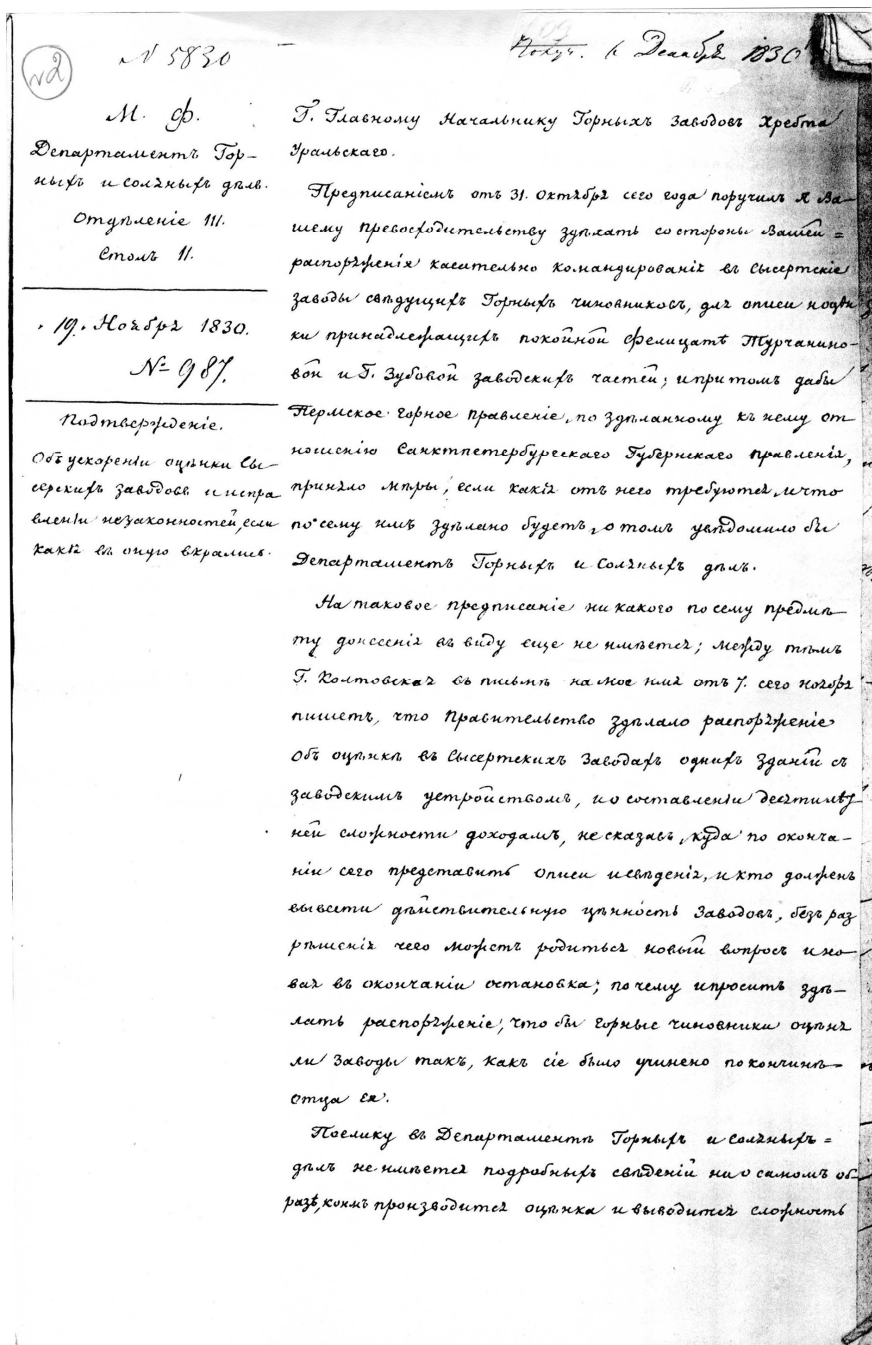 №2
N 5830
Получ. 6 Декабря 1830
М. Ф.
Департаментъ Гор-
ныхъ и Соляныхъ дѣлъ.
Отдѣленіе III.
Столъ II.
19. Ноября 1830.
№ 987.
Подтвержденіе.
Объ ускореніи оцѣнки Сы-
серскихъ заводовъ и испра
вленіи незаконностей, если
какія въ оную вкрались.
Г. Главному Начальнику Горныхъ Заводовъ Хребта
Уральскаго.
Предписаніемъ отъ 31. Октября сего года поручилъ я Ва-
шему Превосходительству здѣлать со стороны Вашей=
распоряженія касательно командированія въ Сысертскіе
заводы свѣдущихъ Горныхъ чиновниковъ, для описи и оцѣн
ки принадлежащихъ покойной Фелицатѣ Турчанино-
вой и Г. Зубовой заводскихъ частей; и при томъ дабы
Пермское горное правленіе, по здѣланному къ нему от
ношенію Санктпетербургскаго Губернскаго правленія,
приняло мѣры, если какія отъ него требуются, и что
по сему имъ здѣлано будетъ, о томъ увѣдомило бы
Департаментъ Горныхъ и Соляныхъ дѣлъ.
На таковое предписаніе ни какого по сему предмѣ-
ту донесенія въ виду еще не имѣется; между тѣмъ
Г. Колтовская въ письмѣ на мое имя отъ 7. сего ноября
пишетъ, что Правительство здѣлало распоряженіе
Объ оцѣнкѣ въ Сысертскихъ Заводахъ однихъ зданій съ
заводскимъ устройствомъ, и о составленіи десятилѣт-
ней сложности доходамъ, не сказавъ, куда по оконча-
ніи сего представить описи и свѣденія, и кто долженъ
вывести дѣйствительную цѣнность Заводовъ, безъ раз
рѣшенія чего можетъ родиться новый вопросъ и но-
вая въ окончаніи остановка; по чему и проситъ здѣ-
лать распоряженіе, что бы горные чиновники оцѣня
ли Заводы такъ, какъ сіе было учинено по кончинѣ=
отца ея.
Поелику въ Департаментѣ Горныхъ и Соляныхъ=
дѣлъ не имѣется подробныхъ свѣденій ни о самомъ об-
разѣ, коимъ производится оцѣнка и выводится сложность